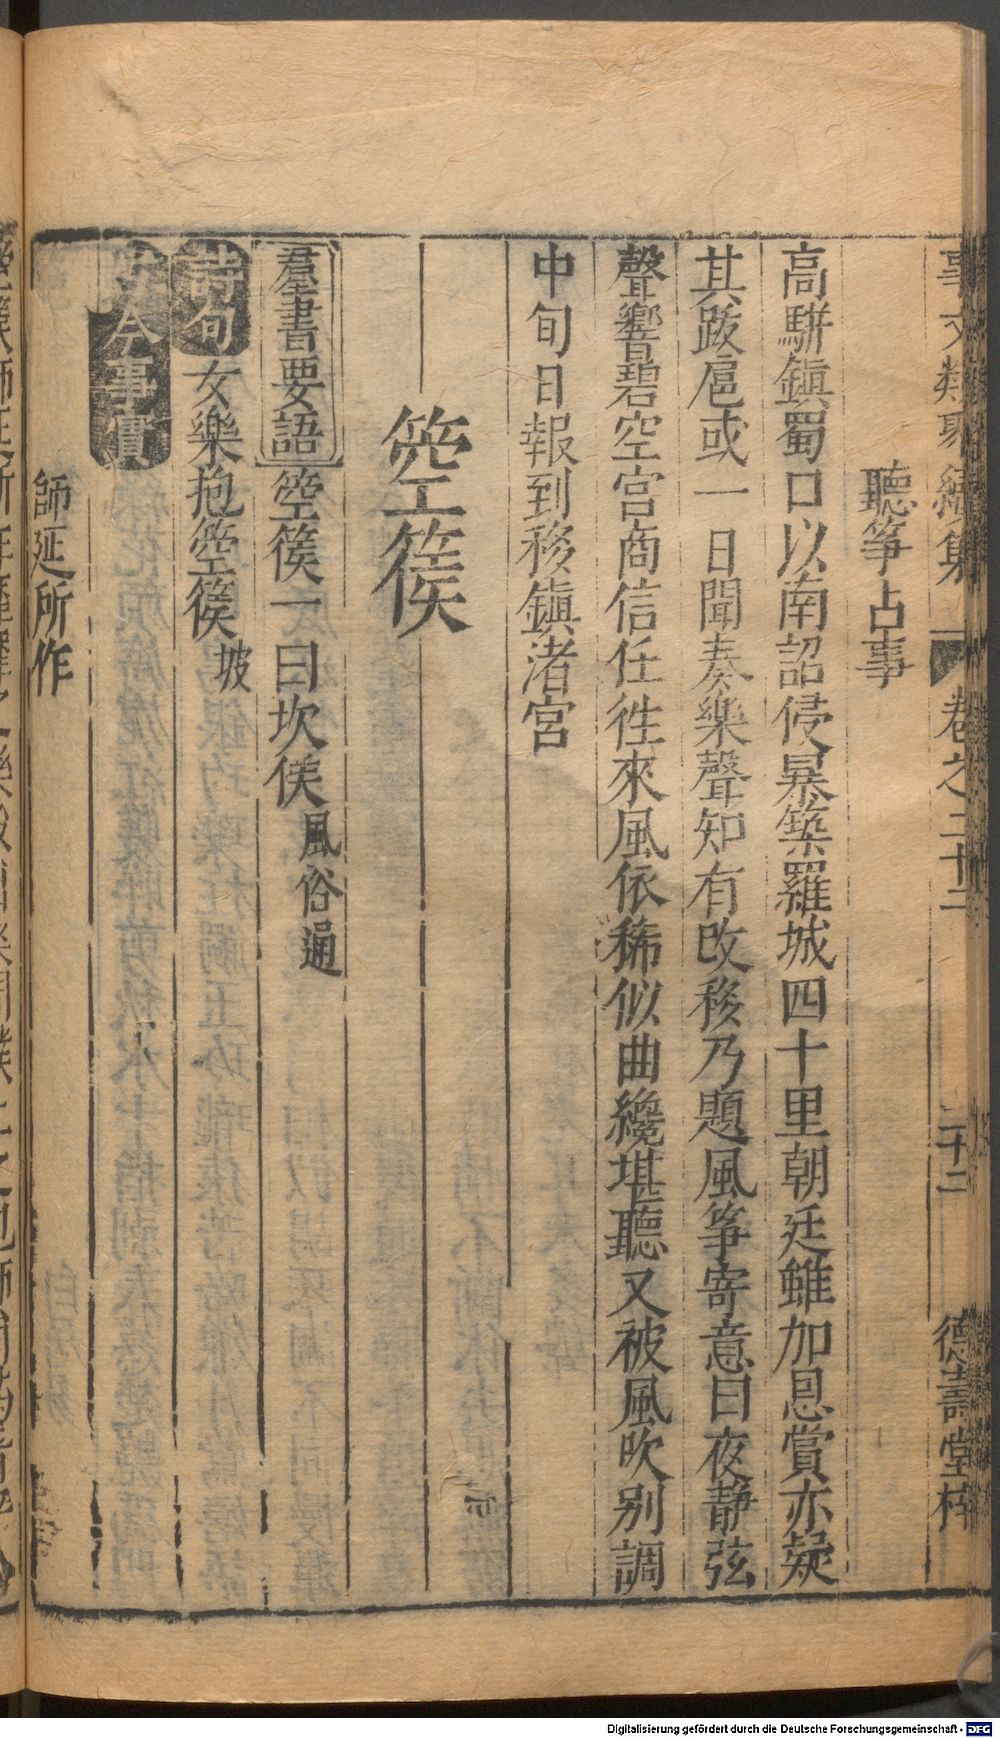 事文類聚續集 卷之二十二 二十二 德壽堂梓
聽箏占事
高駢鎮蜀口以南詔侵暴築羅城四十里朝廷雖加恩賞亦疑
其跋扈或一日聞奏樂聲知有改移乃題風箏寄意曰夜静弦
聲響碧空宫商信任徃來風依稀似曲纔堪聽又被風吹别調
中旬日報到移鎮渚宫
箜篌
羣書要語 箜篌一曰坎侯 風俗通
詩句 女樂抱箜篌 坡
古今事實
師延所作
Digitalisierung gefördert durch die Deutsche Forschungsgemeinschaft - DFG